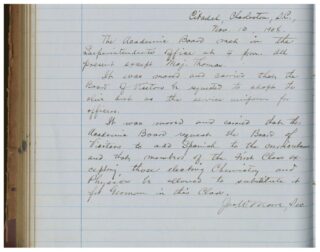 Citadel, Charleston, S.C.,
Nov. 10 1908
The Academic Board met in the
Superintendent's Office at 4 p.m. All
present except Maj. Thomas.
It was moved and carried that the
Board of Visitors be requested to adopt the
olive as the service uniform for
officers.
It was moved and carried that the
Academic Board request the Board of
Visitors to add Spanish to the
and that members of the First Class ex
cepting those electing Chemistry and
Physics be allowed to substitute it
for German in this Class.
Sec